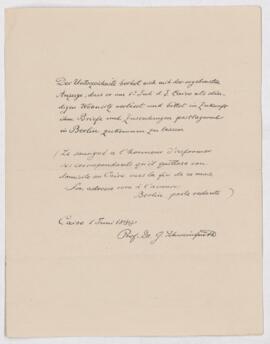 Der Unterzeichnete beehrt sich mit der ergebensten
Anzeige, dass er am 1. Juli d. J. Cairo als stän-
digen Wohnsitz verlässt und bittet in Zukunft
ihm Briefe und Zusendungen postlagernd
in Berlin zukommen zu lassen
(Le soussigné a l'honneur d'informer
ses correspondants qu'il quittera son
domicile au Caire vers la fin de ce mois
Son adresse sera à l'avenir
Berlin poste restante)
Cairo 1 Juni
Prof. Dr. G. Schweinfurth